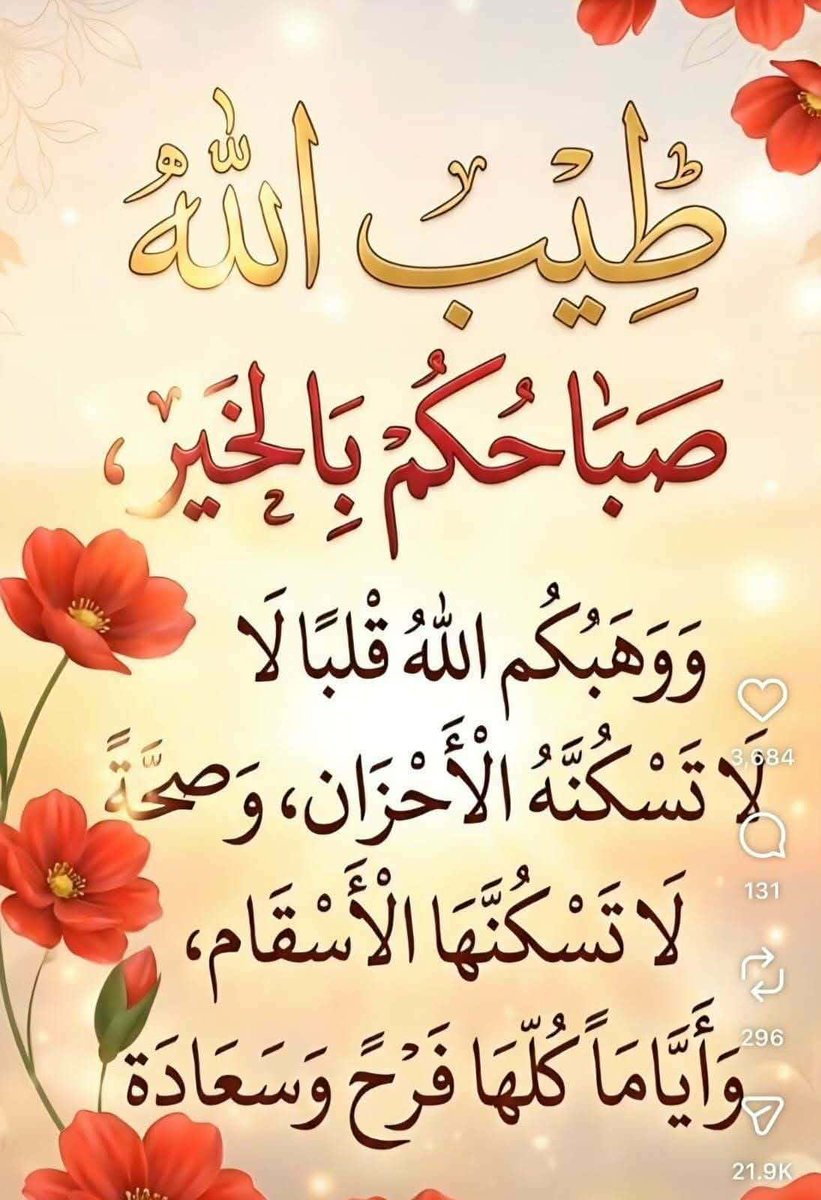 طِيْبَ اللّٰهُ
صَبَاحُكُمْ بِالخَيْرِ،
وَوَهَبُكُم اللّٰهُ قْلبًا لَا
لَا تَسْكُنَّهُ الْأَحْزَان، وَصحَّةً
لَا تَسْكُنَّهَا الْأَسْقَام،
وَأَيَّامَاً كُلّهَا فَرْحً وَسَعَادَة
3,684
131
296
21.9K